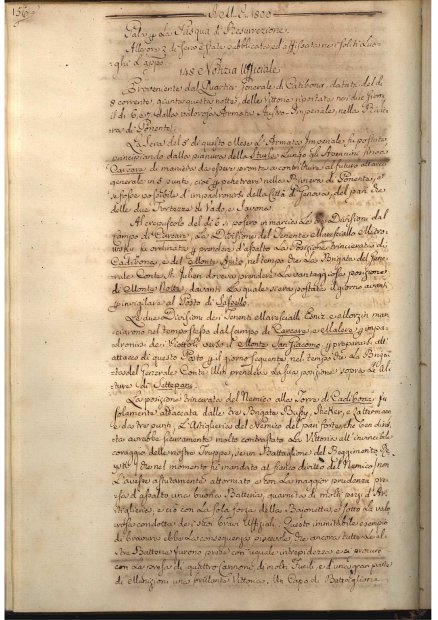 156
A. M. C. 1800
Pala, La Pasqua d. Resurrezione.
Alle ore 3 di sera è stata pubblicata ed affissata ne soliti Luo-
ghi d'appo
148 Notizia Ufficiale
Proveniente dal Quartier Generale di Cadibona, datata del dì
8 corrente, giunta questa notte, delle Vittorie riportate nei due giorni
il dì 6, e 7 dalla valorosa Armata Austro-Imperiale, nella Rivie-
ra di Ponente.
La Sera del 5 di questo Mese l'Armata Imperiale si postata
principiando dalla pianura della Stura Lungo gli Apennini sino a
Carcare di maniera da essere pronta a contribuire al futuro attacco
generale in 5 punti, cioè penetrare nella Riviera di Ponente,
e possibile d'impadronirsi della Città di Genova, del pari che
delle due Fortezze di Vado, e Savona.
Al crepuscolo del dì 6 si posero in marcia Le Divisioni dal
Campo di Carcare. La Divisione del Tenente Maresciallo Mitro-
wsky fu ordinata prendere d'assalto La Posizione trincierata di
Cadibona, e del Monte Ajuto nel tempo che La Brigata del Gene-
rale Conte St. Julien doveva prendere La vantaggiosa posizione
di Monte Notte, davanti La quale s'era postata il giorno avanti
invigilare al Posto di Sassello.
Le due Divisioni dei Tenenti Marescialli Elsniz e Morzin mar-
ciarono nel tempo stesso dal campo di Carcare, e Malere, impa-
dronirsi dei Viottoli verso il Monte San Giacomo, prepararsi all'
attacco di questo Posto il giorno seguente nel tempo che La Briga-
ta del Generale Conte Ulm prendeva La sua posizione sopra Le al-
ture di Settepani.
La posizione trincerata del Nemico alla Torre di Cadibona fu
solamente attaccata dalle tre Brigate Bussy, Sticker, e Lattermann
e da tre punti, L'Artiglieria del Nemico del pari forte, che ben diret-
ta avrebbe sicuramente molto contrastata La Vittoria all'invincibile
coraggio delle nostre Truppe, se un Battaglione del Reggimento
che nel momento fu mandato al fianco diritto del Nemico non
L'avesse astutamente attorniato e con La maggior prudenza pre-
sa d'assalto una buona Batteria, guarnita di molti pezzi d'Ar-
tiglieria, e ciò con La sola forza della Bajonetta, e sotto La valo-
rosa condotta dei suoi bravi Ufficiali. Questo inimitabile esempio
di bravura ebbe La conseguenza piacevole, che ancora tutte Le al-
tre Batterie furono prese con uguale intrepidezza e si procurò
con La presa di quattro Cannoni di molti Fucili, e d'una gran parte
di Munizioni una brillante Vittoria. Un Capo di Battaglione